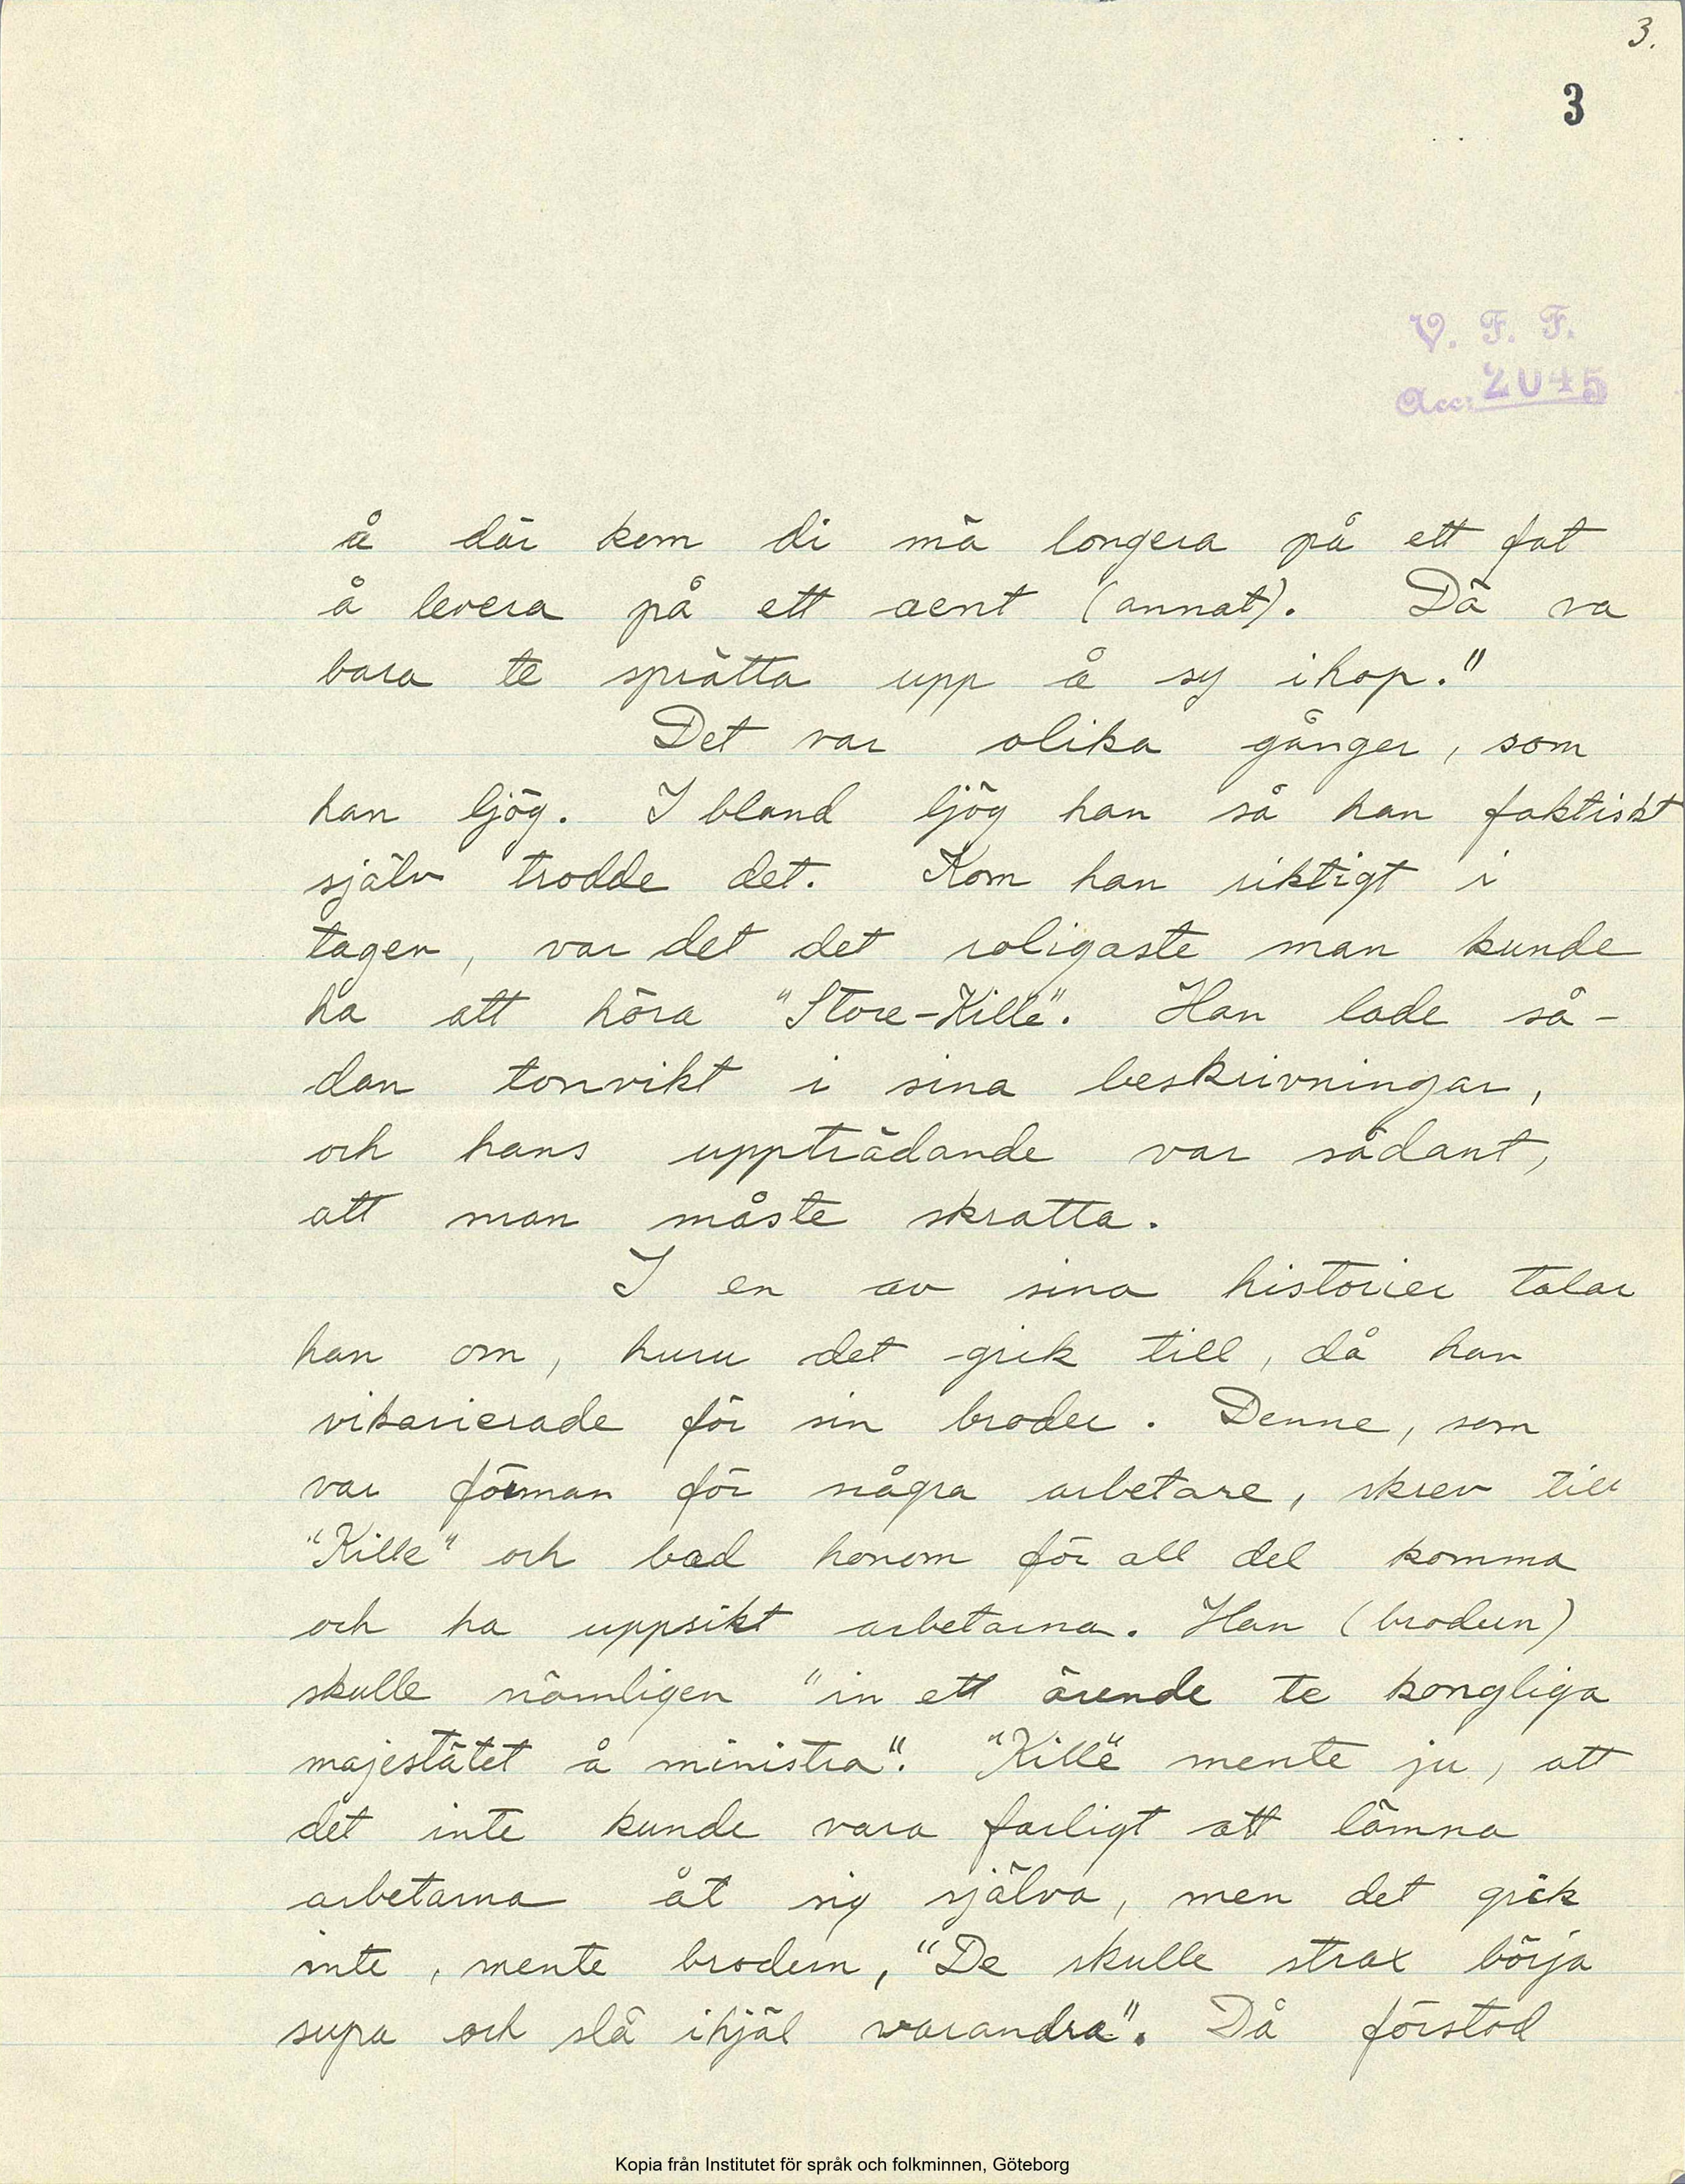 3.
3
V. F. F.
Acc: 2045
å där kom di mä longera på ett fat
å levera på ett aent (annat). Dä va
bara te sprätta upp å sy ihop."
Det var olika gånger, som
han ljög. I bland ljög han så han faktiskt
själv trodde det. Kom han riktigt i
tagen, var det det roligaste man kunde
ha att höra "Store-Kille". Han lade så-
dan tonvikt i sina beskrivningar,
och hans uppträdande var sådant,
att man måste skratta.
I en av sina historier talar
han om, huru det gick till, då han
vikarierade för sin broder. Denne, som
var förman för några arbetare, skrev till
"Kille" och bad honom för all del komma
och ha uppsikt arbetarna. Han (brodern)
skulle nämligen "in ett ärende te kongliga
majestätet å ministra". "Kille" mente ju, att
det inte kunde vara farligt att lämna
arbetarna åt sig själva, men det gick
inte, mente brodern, "De skulle strax börja
supa och slå ihjäl varandra". Då förstod
Kopia från Institutet för språk och folkminnen, Göteborg